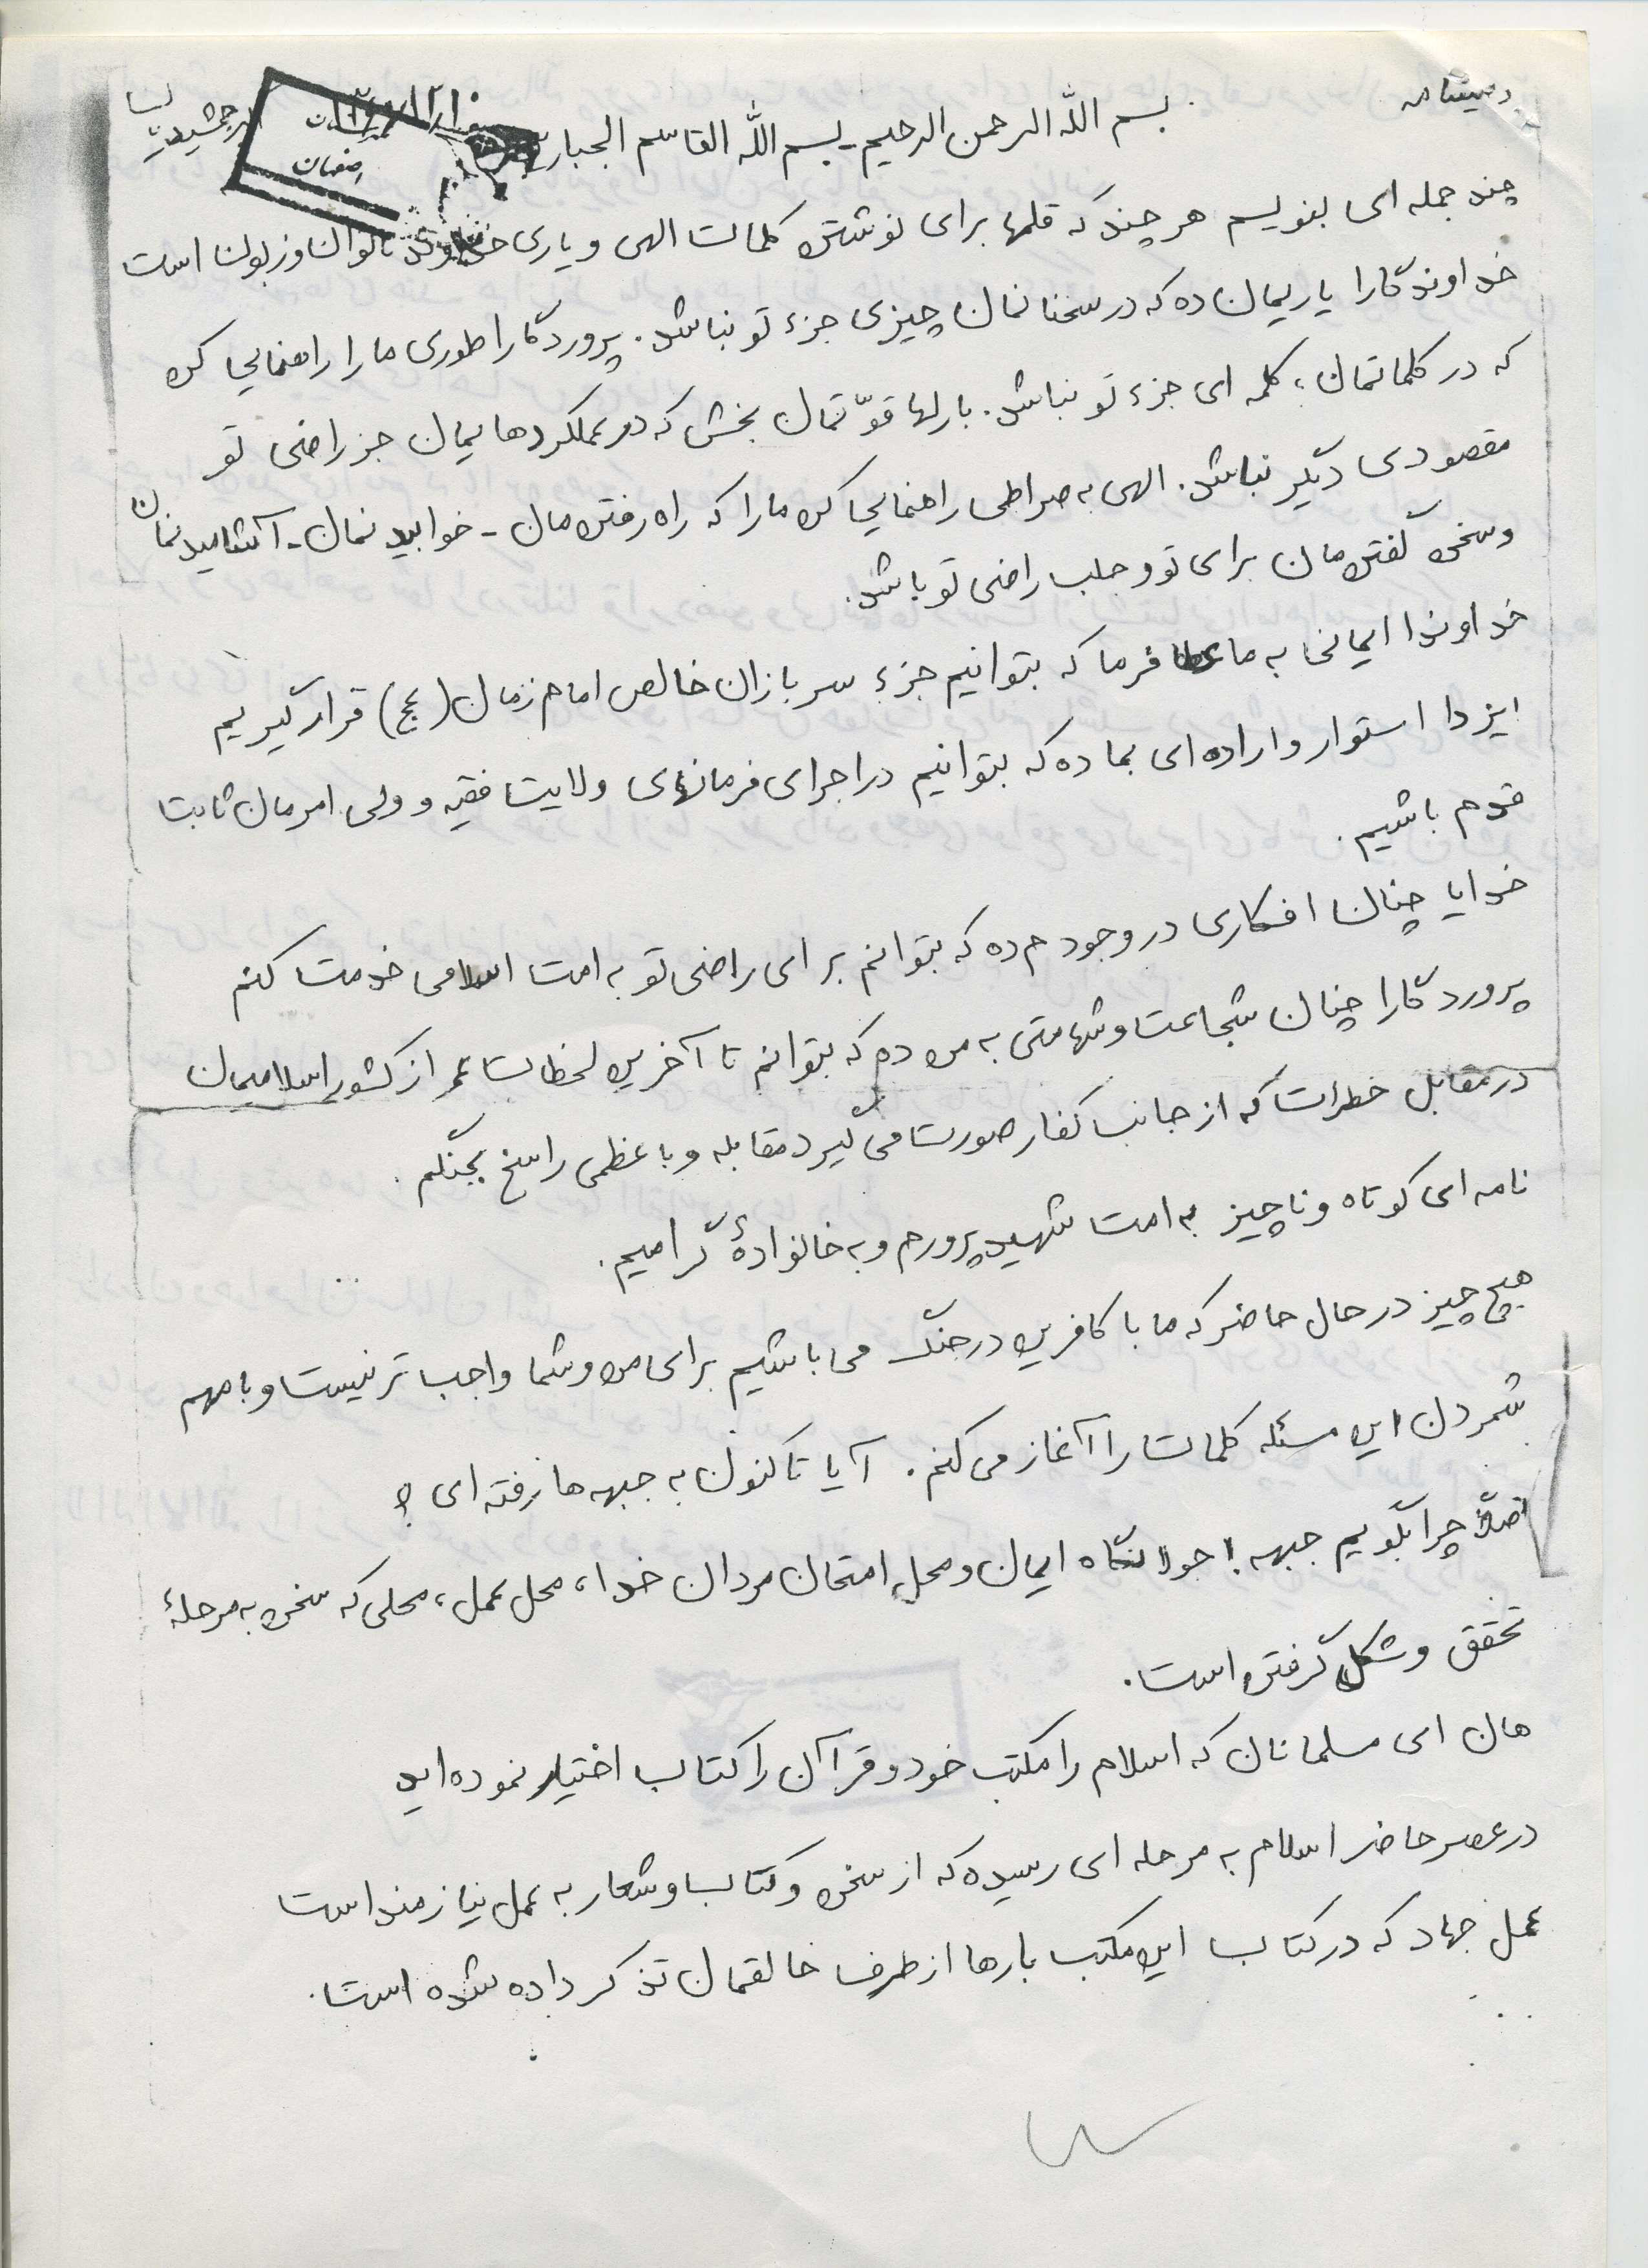 وصیتنامه
بسم الله الرحمن الرحیم - بسم الله القاسم الجبارین
اصفهان
چند جمله ای بنویسم هر چند که قلمها برای نوشتن کلمات الهی و یاری خداوند ناتوان و زبون است
خداوندگارا یاریمان ده که در سخنانمان چیزی جزء تو نباشد. پروردگارا طوری ما را راهنمایی کن
که در کلماتمان، کلمه ای جزء تو نباشد. بارلها قوّتمان بخش که در عملکردهایمان جز راضی تو
مقصودی دیگر نباشد. الهی به صراطی راهنمایی کن ما را که راه رفتن مان - خوابیدنمان - آشامیدنمان
و سخن گفتن مان برای تو و جلب راضی تو باشد.
خداوندا ایمانی به ما عطا فرما که بتوانیم جزء سربازان خالص امام زمان (عج) قرار گیریم
ایزدا استوار و اراده ای بما ده که بتوانیم در اجرای فرمانهای ولایت فقیه و ولی امرمان ثابت
قدم باشیم.
خدایا چنان افکاری در وجودم ده که بتوانم برای راضی تو به امت اسلامی خدمت کنم
پروردگارا چنان شجاعت و شهامتی به من ده که بتوانم تا آخرین لحظات عمر از کشور اسلامیمان
در مقابل خطرات که از جانب کفار صورت می گیرد مقابله و با عظمی راسخ بجنگم.
نامه ای کوتاه و ناچیز به امت شهید پرورم و به خانوادهٔ گرامیم.
هیچ چیز در حال حاضر که ما با کافرین در جنگ می باشیم برای من و شما واجب تر نیست و با مهم
شمردن این مسئله کلمات را آغاز می کنم. آیا تاکنون به جبهه ها رفته ای؟
اصلاً چرا بگویم جبهه! جولانگاه ایمان و محل امتحان مردان خدا، محل عمل، محلی که سخن به مرحلهٔ
تحقق و شکل گرفتن است.
هان ای مسلمانان که اسلام را مکتب خود و قرآن را کتاب اختیار نموده اید
در عصر حاضر اسلام به مرحله ای رسیده که از سخن و کتاب و شعار به عمل نیازمند است
عمل جهاد که در کتاب این مکتب بارها از طرف خالقمان تذکر داده شده است.